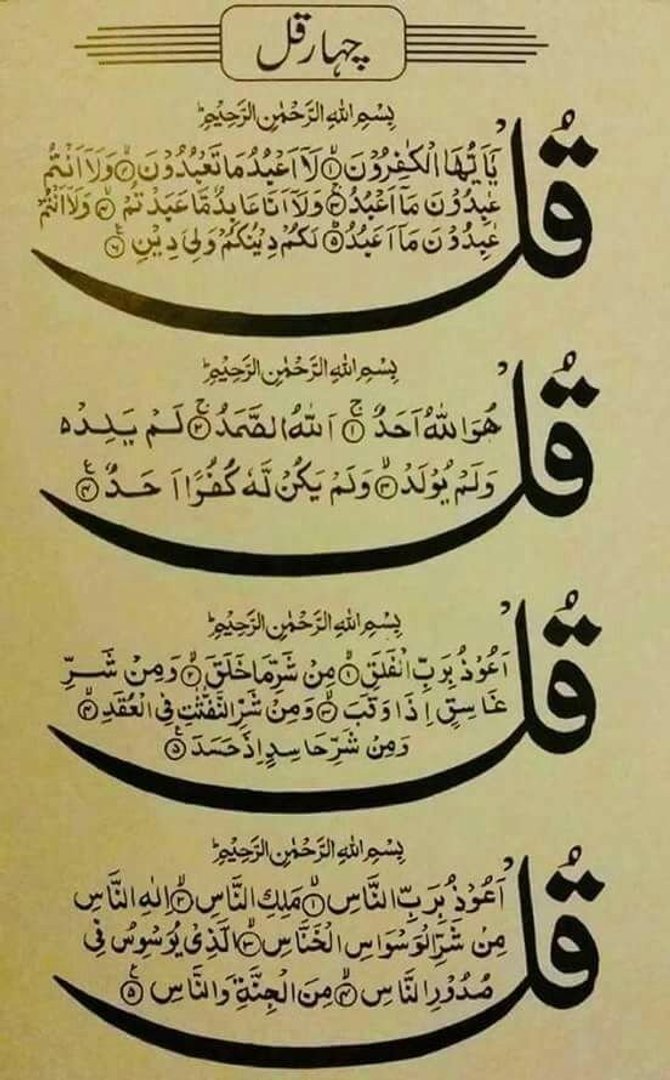 چہار قل
بِسْمِ اللهِ الرَّحْمٰنِ الرَّحِيْمِ
قُلْ يٰۤاَيُّهَا الْكٰفِرُوْنَ ۱ لَاۤ اَعْبُدُ مَا تَعْبُدُوْنَ ۲ وَلَاۤ اَنْتُمْ
عٰبِدُوْنَ مَاۤ اَعْبُدُ ۳ وَلَاۤ اَنَا عَابِدٌ مَّا عَبَدْتُّمْ ۴ وَلَاۤ اَنْتُمْ
عٰبِدُوْنَ مَاۤ اَعْبُدُ ۵ لَكُمْ دِيْنُكُمْ وَلِيَ دِيْنِ ۶
بِسْمِ اللهِ الرَّحْمٰنِ الرَّحِيْمِ
قُلْ هُوَ اللهُ اَحَدٌ ۱ اَللهُ الصَّمَدُ ۲ لَمْ يَلِدْ ە
وَلَمْ يُوْلَدْ ۳ وَلَمْ يَكُنْ لَّهٗ كُفُوًا اَحَدٌ ۴
بِسْمِ اللهِ الرَّحْمٰنِ الرَّحِيْمِ
قُلْ اَعُوْذُ بِرَبِّ الْفَلَقِ ۱ مِنْ شَرِّ مَا خَلَقَ ۲ وَمِنْ شَرِّ
غَاسِقٍ اِذَا وَقَبَ ۳ وَمِنْ شَرِّ النَّفّٰثٰتِ فِي الْعُقَدِ ۴
وَمِنْ شَرِّ حَاسِدٍ اِذَا حَسَدَ ۵
بِسْمِ اللهِ الرَّحْمٰنِ الرَّحِيْمِ
قُلْ اَعُوْذُ بِرَبِّ النَّاسِ ۱ مَلِكِ النَّاسِ ۲ اِلٰهِ النَّاسِ
مِنْ شَرِّ الْوَسْوَاسِ الْخَنَّاسِ ۳ الَّذِيْ يُوَسْوِسُ فِيْ
صُدُوْرِ النَّاسِ ۴ مِنَ الْجِنَّةِ وَالنَّاسِ ۵